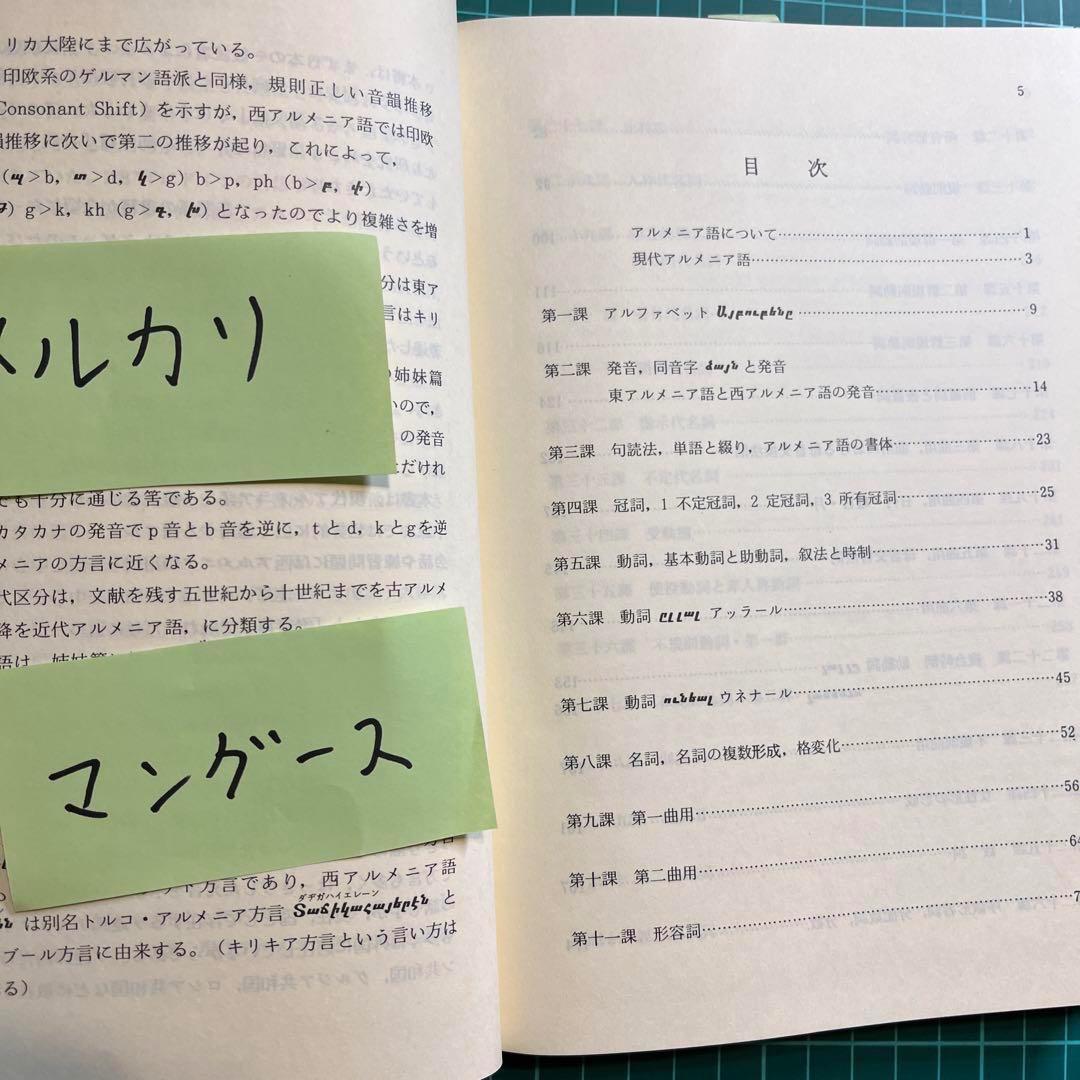 リカ大陸にまで広がっている。
印欧系のゲルマン語派と同様，規則正しい音韻推移
Consonant Shift）を示すが，西アルメニア語では印欧
推移に次いで第二の推移が起り，これによって，
（պ＞b, տ＞d, կ＞g）b＞p, ph（b＞բ, փ）
g＞k, kh（g＞գ, խ）となったのでより複雑さを増
分は東ア
言はキリ
メルカリ
姉妹篇
いので，
の発音
ただけれ
でも十分に通じる筈である。
カタカナの発音でp音とb音を逆に，tとd，kとgを逆
メニアの方言に近くなる。
代区分は，文献を残す五世紀から十世紀までを古アルメ
降を近代アルメニア語，に分類する。
マングース
方言であり，西アルメニア語
ダヂガハイエレーン
は別名トルコ・アルメニア方言 Տաճիկահայերէն と
ブール方言に由来する。（キリキア方言という言い方は
る）
5
目 次
アルメニア語について 1
現代アルメニア語 3
第一課 アルファベット Այբուբենը 9
第二課 発音，同音字 ձայն と発音
東アルメニア語と西アルメニア語の発音 14
第三課 句読法，単語と綴り，アルメニア語の書体 23
第四課 冠詞，1 不定冠詞，2 定冠詞，3 所有冠詞 25
第五課 動詞，基本動詞と助動詞，叙法と時制 31
第六課 動詞 ըլլալ アッラール 38
第七課 動詞 ունենալ ウネナール 45
第八課 名詞，名詞の複数形成，格変化 52
第九課 第一曲用 56
第十課 第二曲用 64
第十一課 形容詞 7